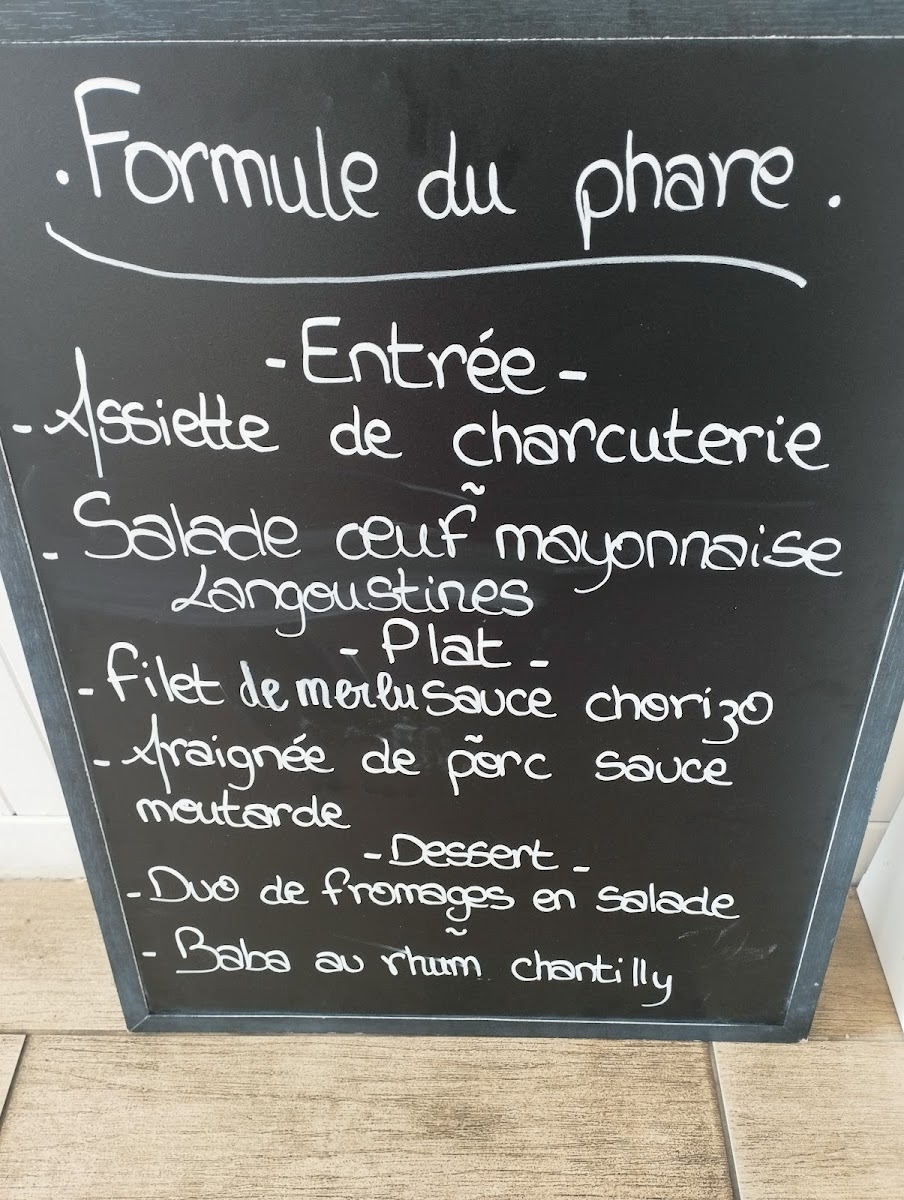 . Formule du phare .
- Entrée -
- Assiette de charcuterie
~
- Salade œuf mayonnaise
Langoustines
- Plat -
- Filet de merlu sauce chorizo
~
- Araignée de porc sauce
moutarde
- Dessert -
- Duo de fromages en salade
~
- Baba au rhum chantilly